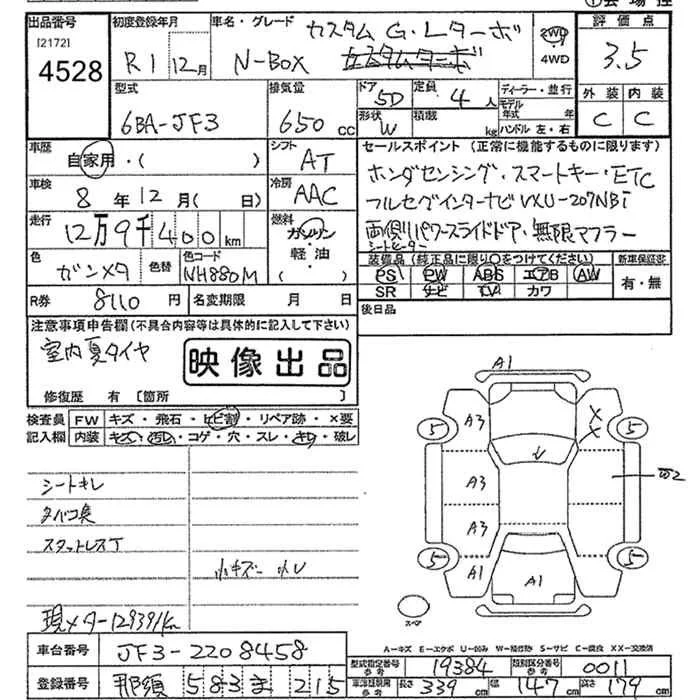 出品番号 初度登録年月 車名・グレード カスタム G・Lターボ 2WD 評価点
[2172]
4528 R1 12月 N-BOX カスタムターボ ・4WD 3.5
型式 排気量 ドア 定員 ディーラー・並行 外装 内装
6BA-JF3 650cc 5D 4人 モデル年式 年 C C
形状 W 積載 kg ハンドル 左・右
車歴 自家用・( ) シフト AT セールスポイント(正常に機能するものに限ります)
車検 8年12月( 日) 冷房 AAC ホンダセンシング・スマートキー・ETC
フルセグインターナビ VXU-207NBi
走行 12万9千400km 燃料 ガソリン・軽油・( ) 両側パワースライドドア・無限マフラー
シートヒーター
色 ガンメタ 色替 色コード NH880M 装備品(純正品に限り○をつけてください) 新車保証書
PS PW ABS エアB AW 有・無
R券 8110円 名変期限 月 日 SR ナビ TV カワ
注意事項申告欄(不具合内容等は具体的に記入して下さい) 後日品
室内夏タイヤ 映像出品
修復歴 有 [箇所 ]
検査員 FW キズ・飛石・ヒビ割・リペア跡・×要
記入欄 内装 キズ・汚れ・コゲ・穴・スレ・キレ・破レ
A1
A3 X X
5 5
シートキレ
A3
タバコ臭
スタットレスT A3
小キズ 小U
5 A1 A1 5
スペア
現メーター129391km
A-キズ E-エクボ U-凹み W-補修跡 S-サビ C-腐食 XX-交換済
車台番号 JF3-2208458 型式指定番号 参考 19384 類別区分番号 参考 0011
登録番号 那須 583 ま 215 長さ 339cm 幅 147cm 高さ 179cm